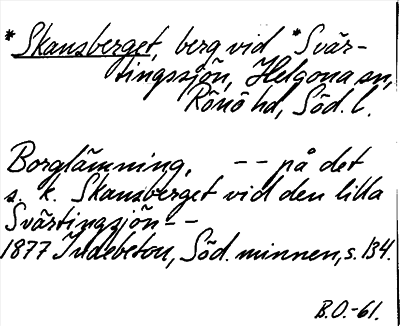 *Skansberget, berg vid *Svär-
tingssjön, Helgona sn,
Rönö hd, Söd. l.
Borglämning, -- på det
s. k. Skansberget vid den lilla
Svärtingsjön --
1877 Indebetou, Söd. minnen, s. 134.
B.O.-61.